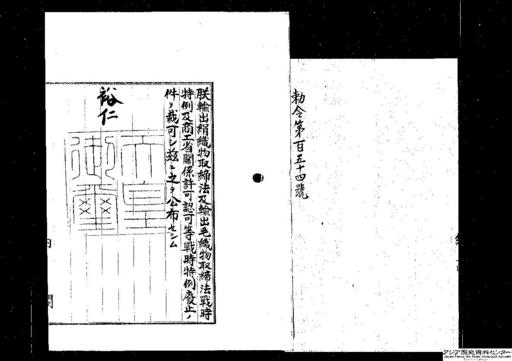 勅令第百五十四號
朕輸出絹織物取締法及輸出毛織物取締法戰時
特例及商工省關係許可認可等戰時特例廢止ノ
件ヲ裁可シ玆ニ之ヲ公布セシム
裕仁
天皇御璽
内閣
アジア歴史資料センター